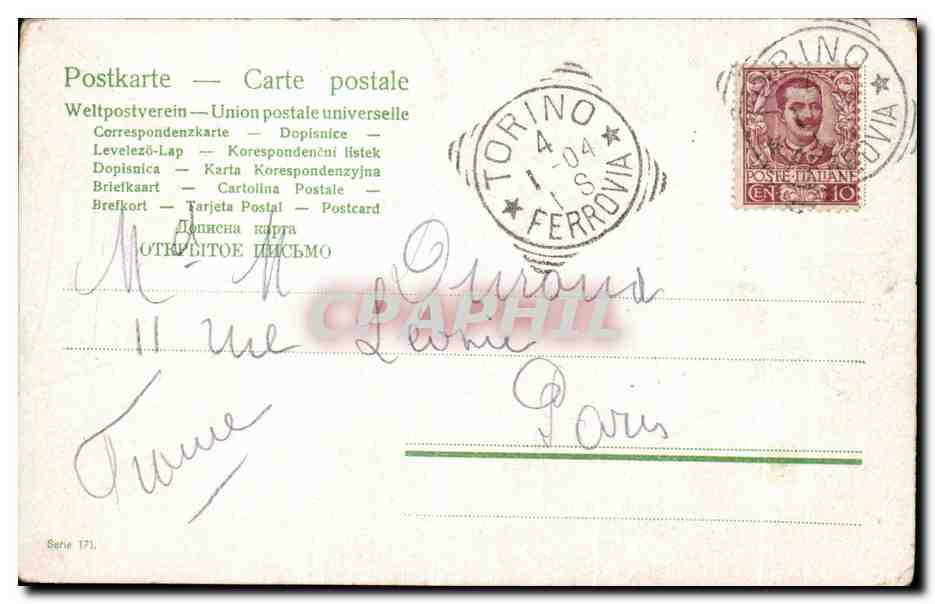 Postkarte — Carte postale
Weltpostverein — Union postale universelle
Correspondenzkarte — Dopisnice —
Levelező-Lap — Korespondenční listek
Dopisnica — Karta Korespondenzyjna
Briefkaart — Cartolina Postale —
Brefkort — Tarjeta Postal — Postcard
Дописна карта
ОТКРЫТОЕ ПИСЬМО
TORINO
4
1 -04
1 S
FERROVIA
TORINO
FERROVIA
POSTE ITALIANE
CEN 10
M d M Durand
CPAPHIL
11 rue Leonie
Paris
France
Serie 171.